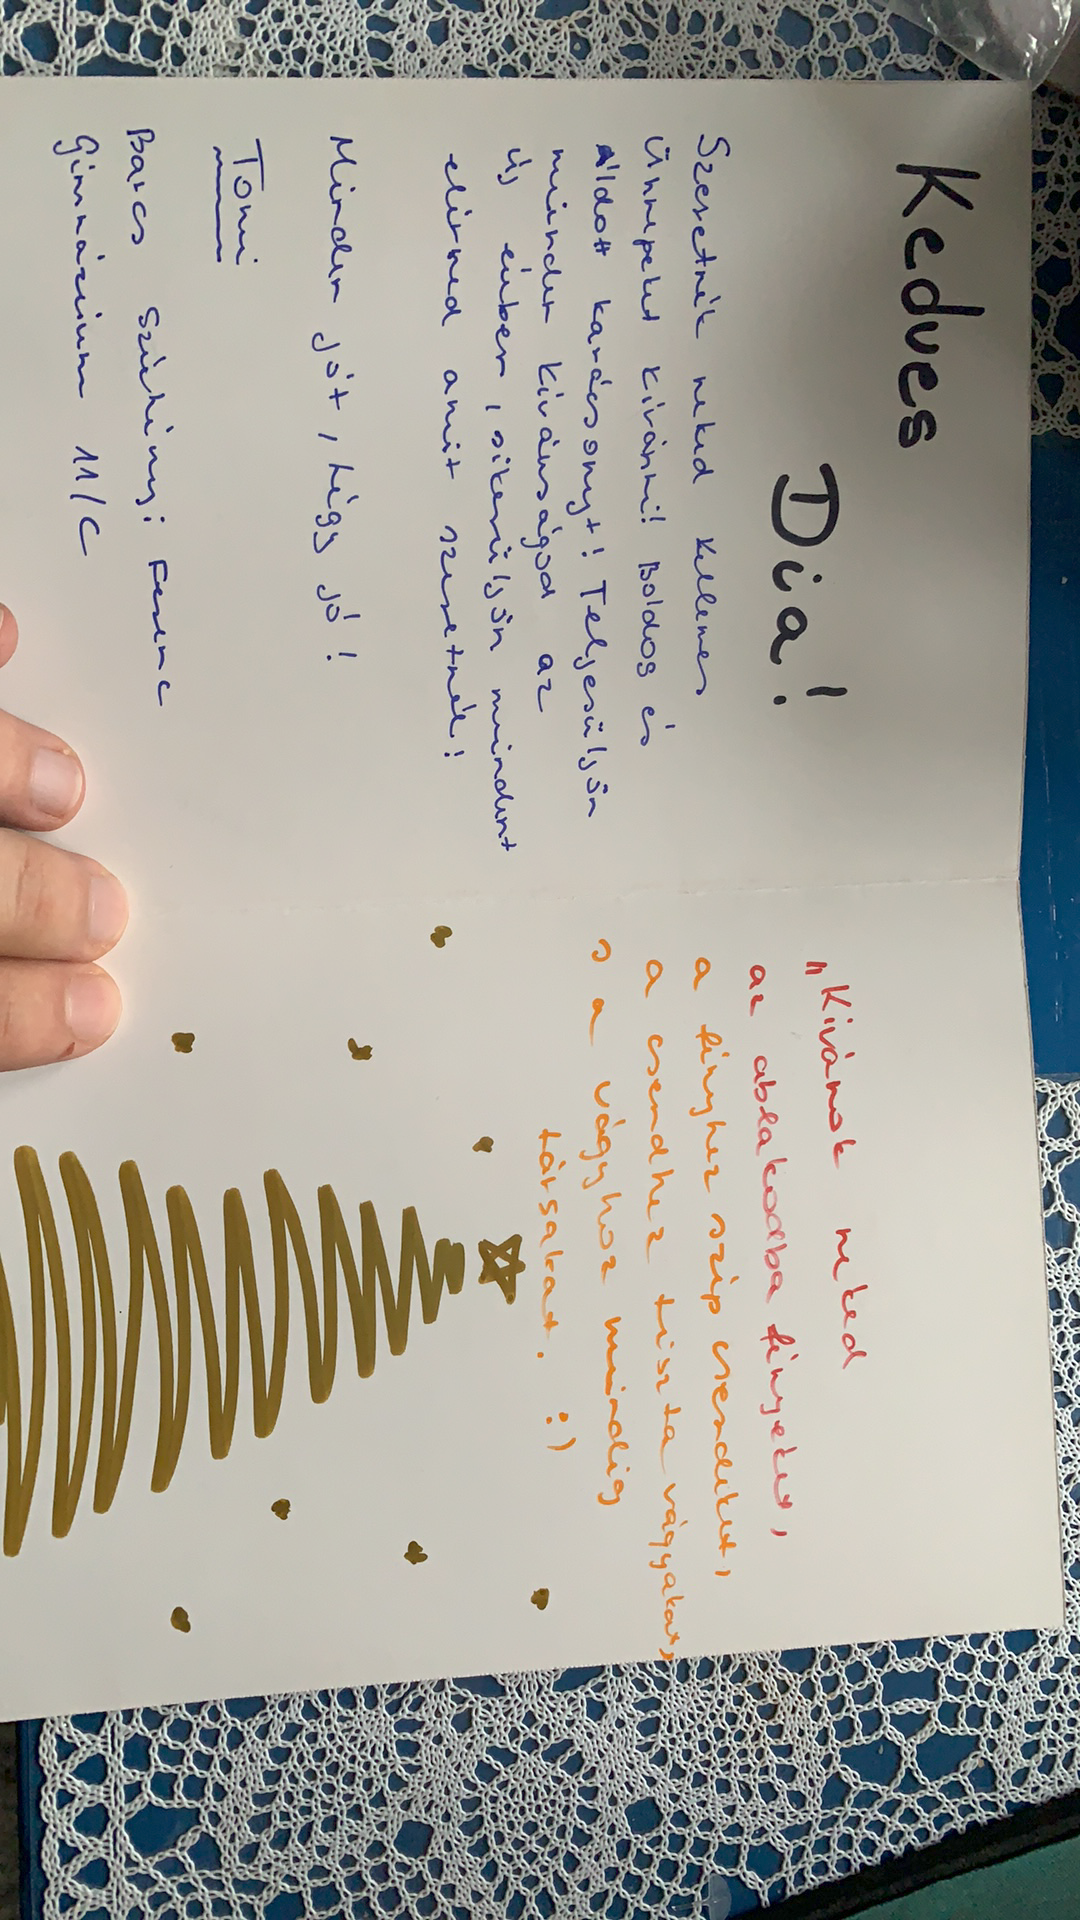 Kedves
Dia!
Szeretnék neked kellemes
ünnepeket kívánni! Boldog és
áldott karácsonyt! Teljesüljön
minden kívánságod az
új évben, sikerüljön mindent
elérned amit szeretnél!
Minden jót, légy jó!
Toni
Barcs Széchényi Ferenc
Gimnázium 11/C
"Kívánok neked
az ablakodba fényeket,
a fényhez szép csendeket,
a csendhez tiszta vágyakat,
s a vágyhoz mindig
társakat. :)